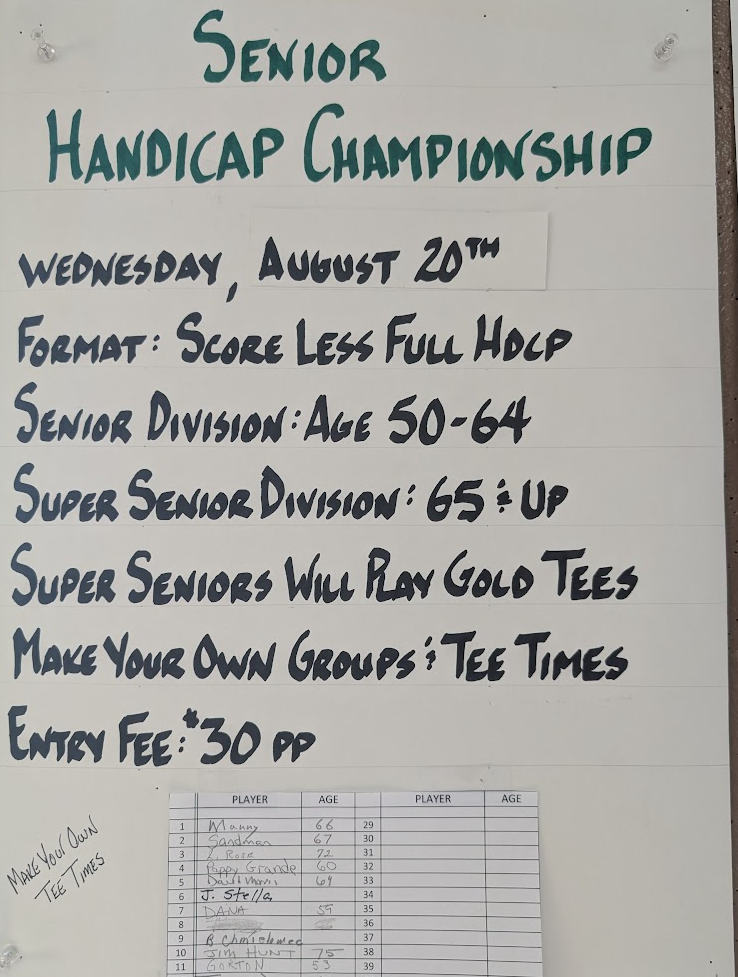 SENIOR
HANDICAP CHAMPIONSHIP
WEDNESDAY, AUGUST 20TH
FORMAT: SCORE LESS FULL HDCP
SENIOR DIVISION: AGE 50-64
SUPER SENIOR DIVISION: 65 & UP
SUPER SENIORS WILL PLAY GOLD TEES
MAKE YOUR OWN GROUPS & TEE TIMES
ENTRY FEE: $30 PP
MAKE YOUR OWN
TEE TIMES
PLAYER AGE PLAYER AGE
1 Manny 66 29
2 Sandman 67 30
3 L. Rose 72 31
4 Poppy Grande 60 32
5 David 69 33
6 J. Stella 34
7 DANA 59 35
8 36
9 B 37
10 JIM HUNT 75 38
11 GORTON 53 39